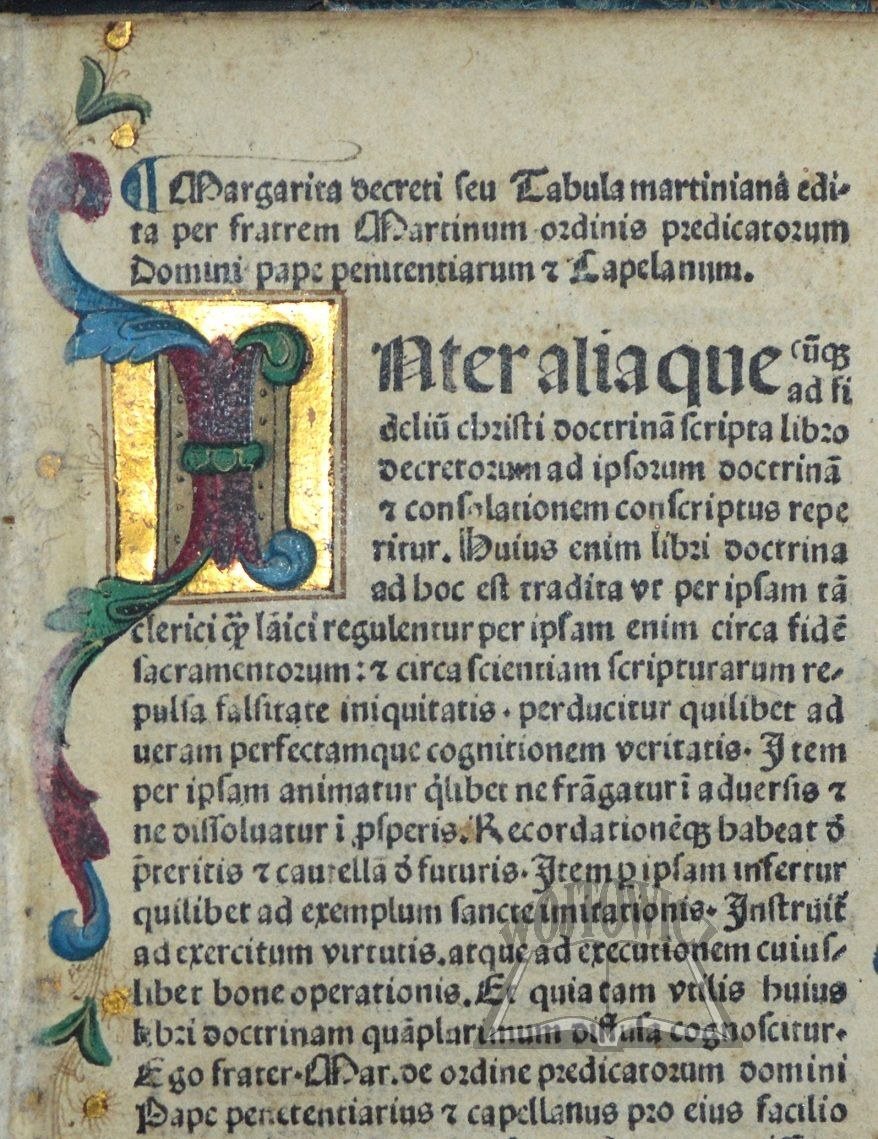 ¶ Margarita decreti seu Tabula martinianā edi-
ta per fratrem Martinum ordinis predicatorum
Domini pape penitentiarum ⁊ Capelanum.
INter alia que cūqꝫ
ad fi
deliū christi doctrinā scripta libro
decretorum ad ipsorum doctrinā
⁊ consolationem conscriptus repe
ritur. Huius enim libri doctrina
ad hoc est tradita vt per ipsam tā
clerici qꝫ̄ lāici regulentur per ipsam enim circa fidē
sacramentorum: ⁊ circa scientiam scripturarum re-
pulsa falsitate iniquitatis. perducitur quilibet ad
ueram perfectamque cognitionem veritatis. Item
per ipsam animatur q̇libet ne frāgatur ī aduersis ⁊
ne dissoluatur ī ꝓsperis. Recordationēqꝫ habeat đ
p̄teritis ⁊ cautellā đ futuris. Item ꝑ ipsam infertur
quilibet ad exemplum sancte imitationis. Instruit̄
ad exercitum virtutis. atque ad executionem cuius-
libet bone operationis. Et quia tam vtilis huius
libri doctrinam quāplurimum diffusa cognoscitur.
Ego frater. Mar. de ordine predicatorum domini
Pape penitentiarius ⁊ capellanus pro eius facilio
WÓJTOWICZ